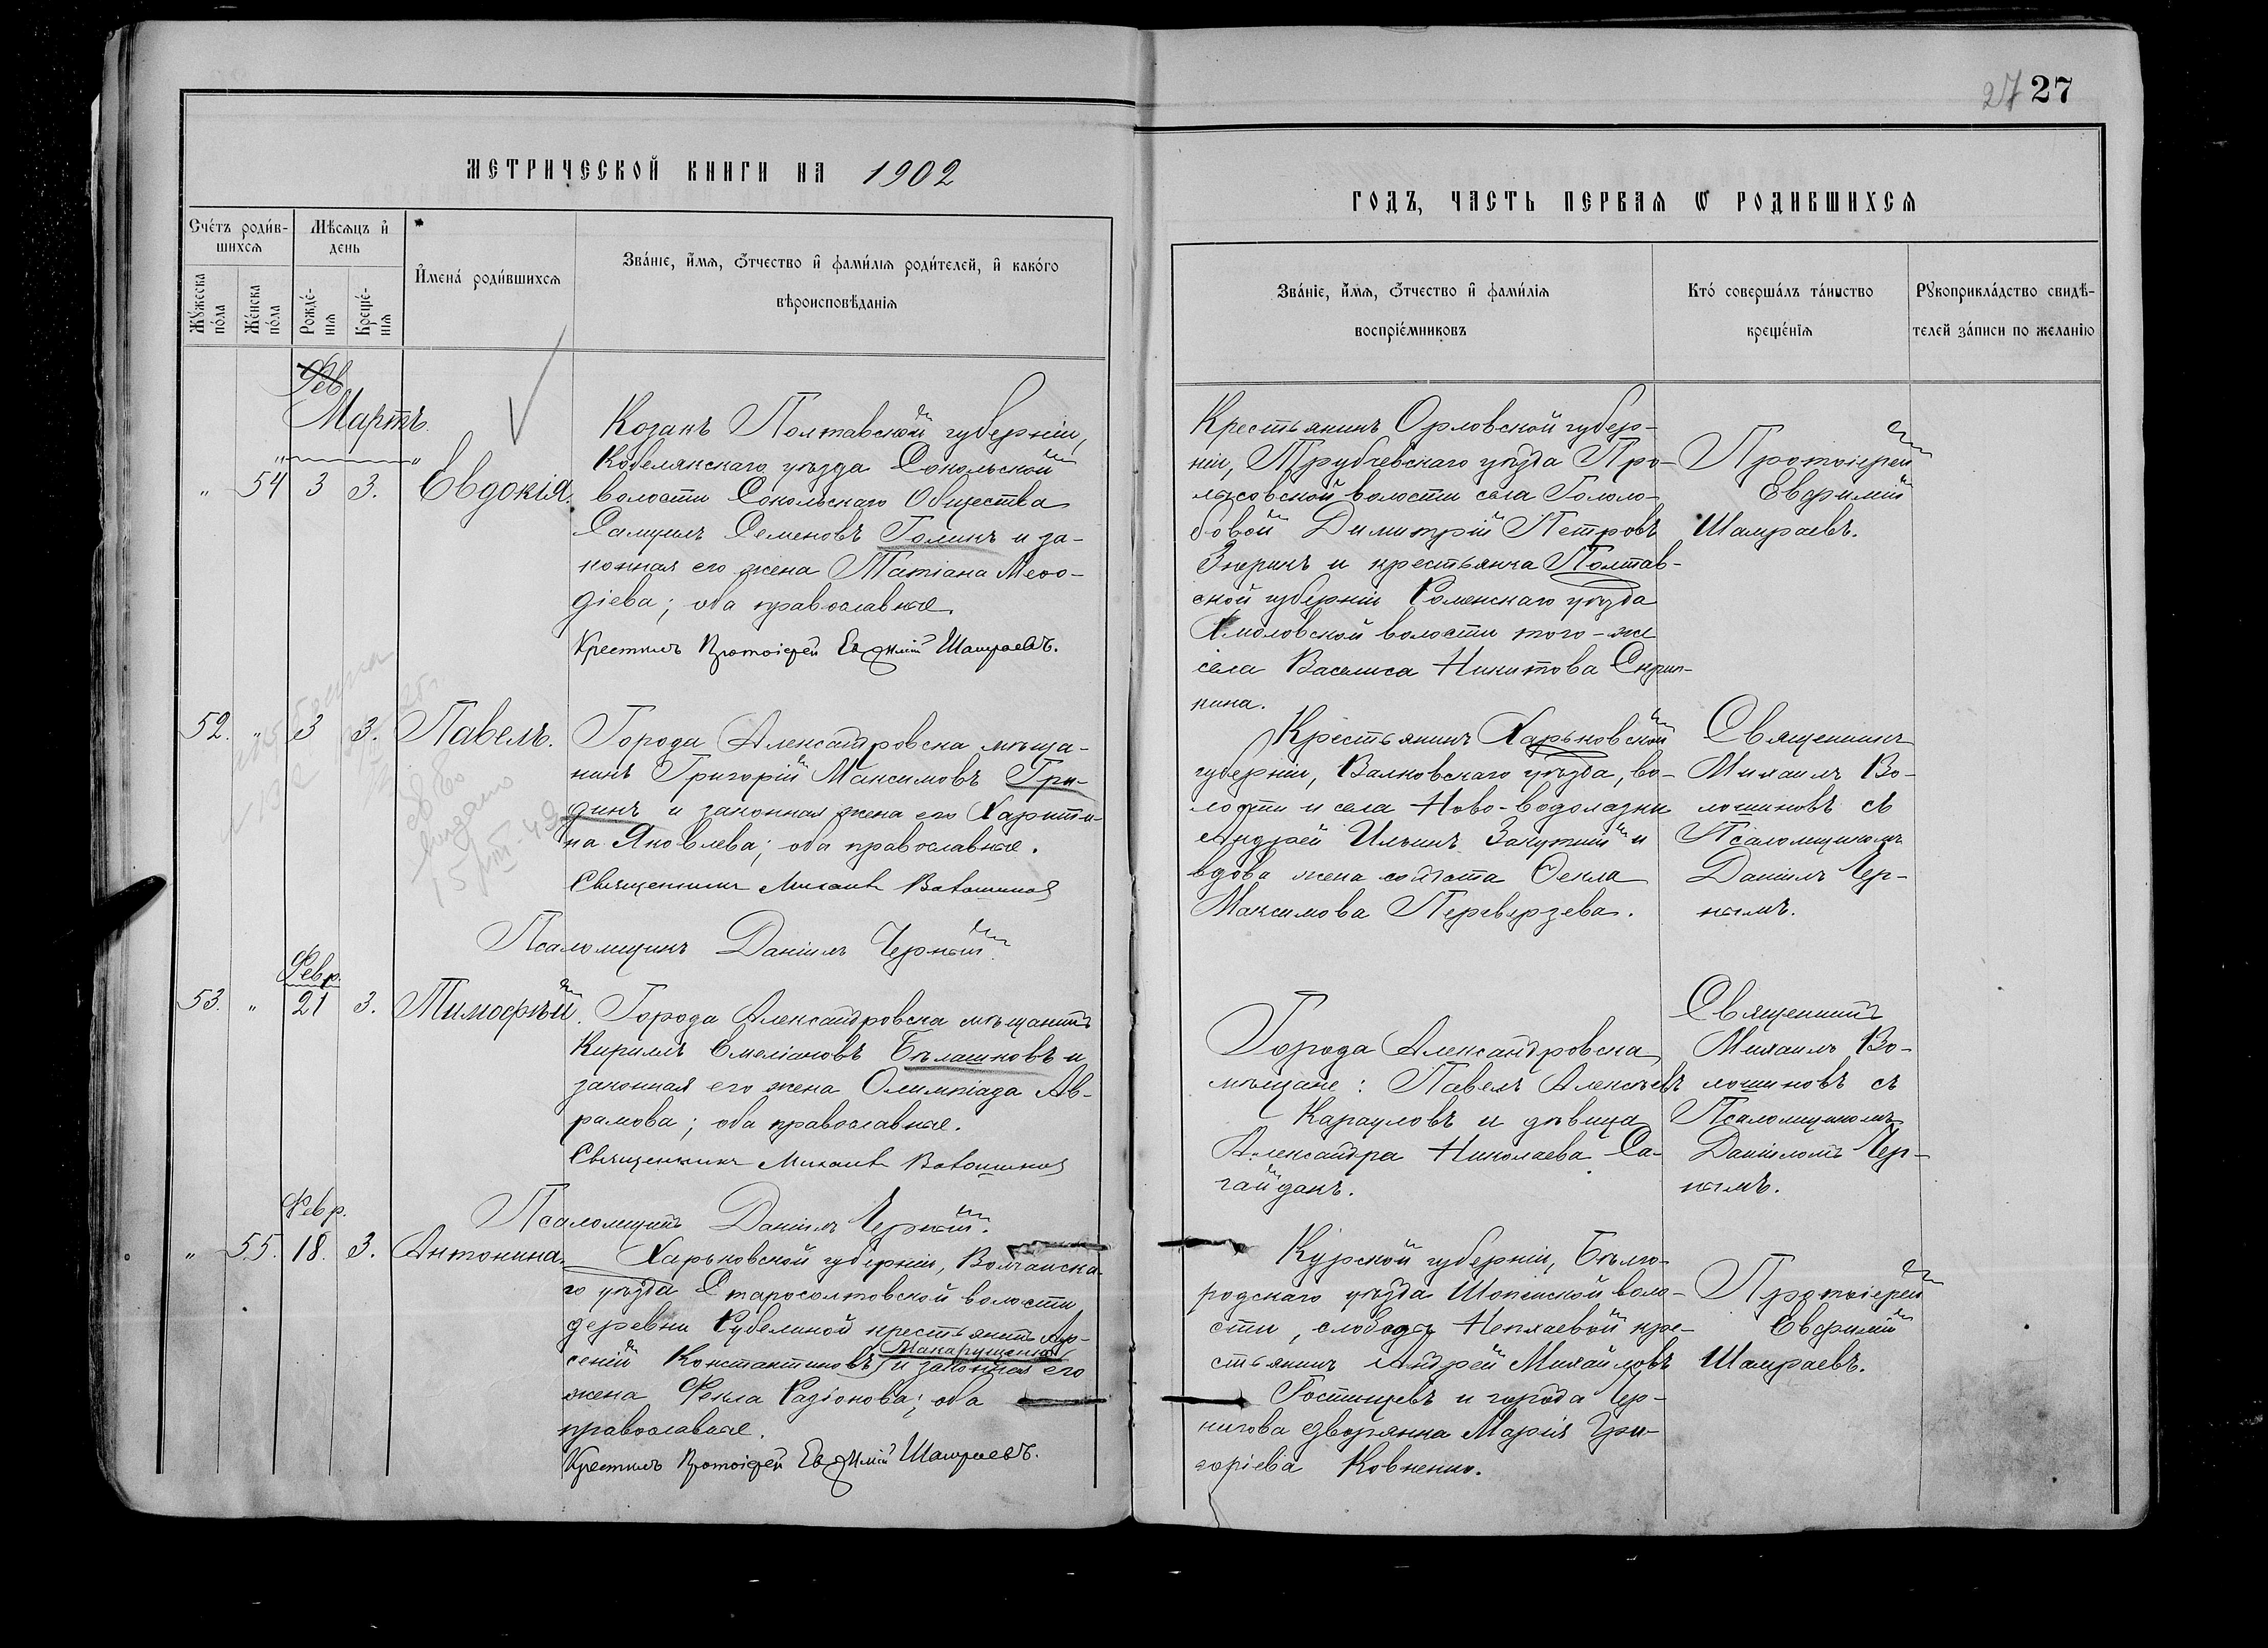 27 27
МЕТРИЧЕСКОЙ КНИГИ НА 1902
ГОДЪ, ЧАСТЬ ПЕРВАЯ Ѡ РОДИВШИХСЯ
Счетъ родив-
шихся
Мѣсяцъ и
день
Мужеска
пола
Женска
пола
Рожде-
нія
Креще-
нія
Имена родившихся
Званіе, имя, отчество и фамилія родителей, и какого
вѣроисповѣданія
Званіе, имя, отчество и фамилія
воспріемниковъ
Кто совершалъ таинство
крещенія
Рукоприкладство свидѣ-
телей записи по желанію
Фев
Мартъ
" 54 3 3. Евдокія.
Козакъ Полтавской губерніи,
Кобелякскаго уѣзда Сокольской
волости Сокольскаго Общества
Самуилъ Семеновъ Голикъ и за-
конная его жена Татіана Меѳо-
діева; оба православные.
Крестилъ Протоіерей Евфимій Шамраевъ.
Крестьянинъ Орловской губер-
ніи, Трубчевскаго уѣзда Про-
лысовской волости села Гололо-
бовой Димитрій Петровъ
Зюринъ и крестьянка Полтав-
ской губерніи Роменскаго уѣзда
Хмѣловской волости того-же
села Василиса Никитова Скрип-
кина.
Протоіерей
Евфимій
Шамраевъ.
52. " 3 3. Павелъ.
Города Александровска мѣща-
нинъ Григорій Максимовъ Гри-
динъ и законная жена его Харити-
на Яковлева; оба православные.
Священникъ Михаилъ Волошиновъ
Псаломщикъ Даніилъ Черный.
выдано
Крестьянинъ Харьковской
губерніи, Валковскаго уѣзда, во-
лости и села Ново-водолазки
Андрей Ильинъ Закутній и
вдова жена солдата Ѳекла
Максимова Переверзева.
Священникъ
Михаилъ Во-
лошиновъ съ
Псаломщикомъ
Даніилъ Чер-
нымъ.
Февр.
53. " 21 3. Тимофѣй.
Города Александровска мѣщанинъ
Кириллъ Омеліановъ Бѣлашковъ и
законная его жена Олимпіада Ав-
рамова; оба православные.
Священникъ Михаилъ Волошиновъ
Псаломщикъ Даніилъ Черный.
Города Александровска
мѣщане: Павелъ Алексѣевъ
Карауловъ и дѣвица
Александра Николаева Са-
гайдакъ.
Священникъ
Михаилъ Во-
лошиновъ съ
Псаломщикомъ
Даніиломъ Чер-
нымъ.
Февр.
" 55. 18. 3. Антонина.
Харьковской губерніи, Волчанска-
го уѣзда Старосолтовской волости
деревни Рубежной крестьянинъ Ар-
сеній Константиновъ Макарущенко и законная его
жена Фекла Радіонова; оба
православные.
Крестилъ Протоіерей Евфимій Шамраевъ.
Курской губерніи, Бѣло-
родскаго уѣзда Шопинской воло-
сти, слободы Непхаевой кре-
стьянинъ Андрей Михайловъ
Гостищевъ и города Чер-
нигова дворянка Марія Гри-
горіева Ковненко.
Протоіерей
Евфимій
Шамраевъ.